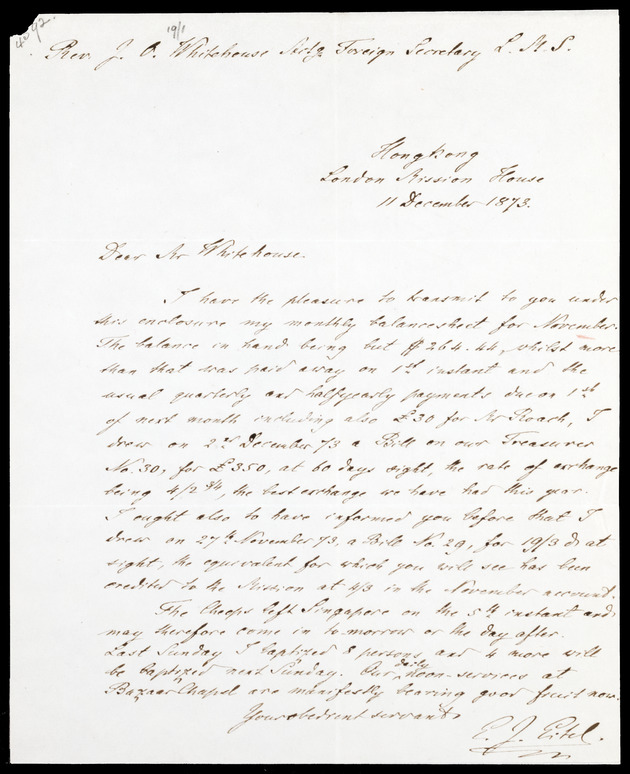 19/1
Rev. J. O. Whitehouse Actg Foreign Secretary L. M. S.
Hongkong
London Mission House
11 December 1873.
Dear Mr Whitehouse.
I have the pleasure to transmit to you under
this enclosure my monthly balancesheet for November.
The balance in hand being but $ 264.44, whilst more
than that was paid away on 1st instant and the
usual quarterly and halfyearly payments due on 1st
of next month including also £30 for Mr Roach, I
drew on 2nd December 73 a Bill on our Treasurer
No. 30, for £350, at 60 days sight, the rate of exchange
being 4/2 3/4, the best exchange we have had this year.
I ought also to have informed you before that I
drew on 27th November 73, a Bill No. 29, for 19/3 at
sight, the equivalent for which you will see has been
credited to the Mission at 4/3 in the November account.
The Cheops left Singapore on the 5th instant and
may therefore come in to-morrow or the day after.
Last Sunday I baptized 8 persons and 4 more will
be baptized next Sunday. Our daily noon-services at
Bazaar Chapel are manifestly bearing good fruit now.
Your obedient servant
E. J. Eitel.